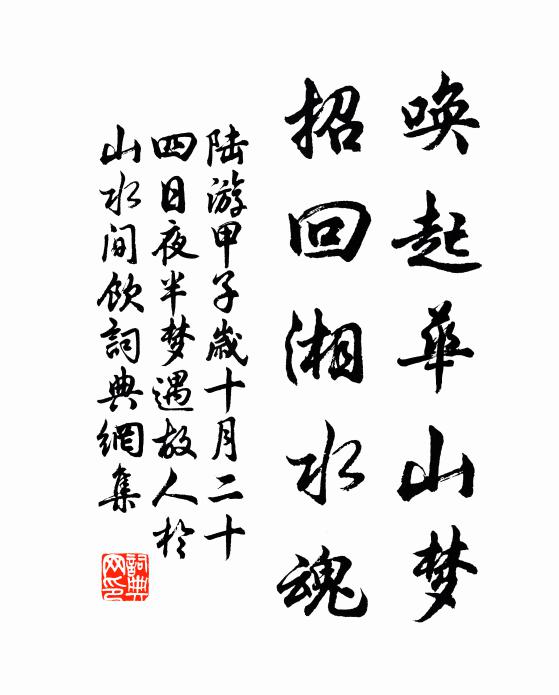 唤起华山梦
招回湘水魂
陆游甲子岁十月二十
四日夜半梦遇故人于
山水间饮词典网集
词典网印